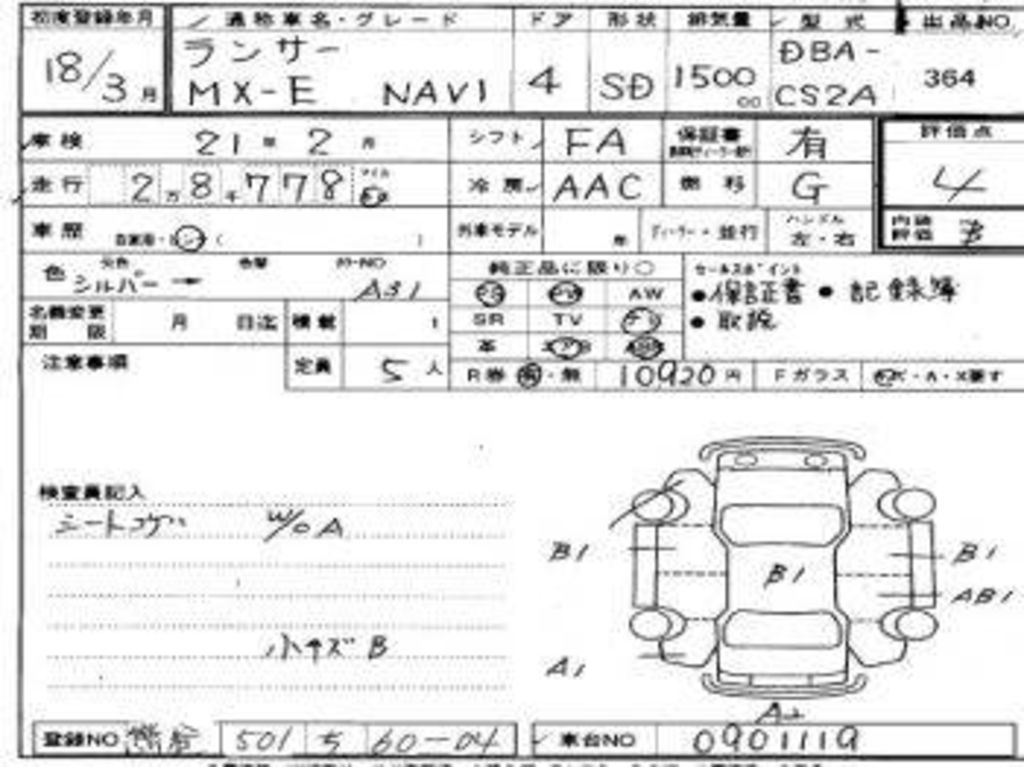 初度登録年月 通称車名・グレード ドア 形状 排気量 型式 出品NO.
18/3月 ランサー MX-E NAVI 4 SD 1500 DBA-CS2A 364
車検 21年 2月 シフト FA 保証書 有 評価点
走行 2万8千778 冷房 AAC 燃料 G 4
車歴 外車モデル 年 ディーラー・並行 ハンドル 左・右 内装評価 B
色 シルバー カラーNO A31 純正品に限り○ セールスポイント
PS PW AW ●保証書 ●記録簿
名義変更期限 月 日迄 積載 t SR TV ナビ ●取説
注意事項 定員 5人 革 エアB ABS
R券 有・無 10920円 Fガラス
検査員記入
シートコゲ W/OA
B1 B1 B1
AB1
小キズB
A1
A2
登録NO 501 60-04 車台NO 0901119